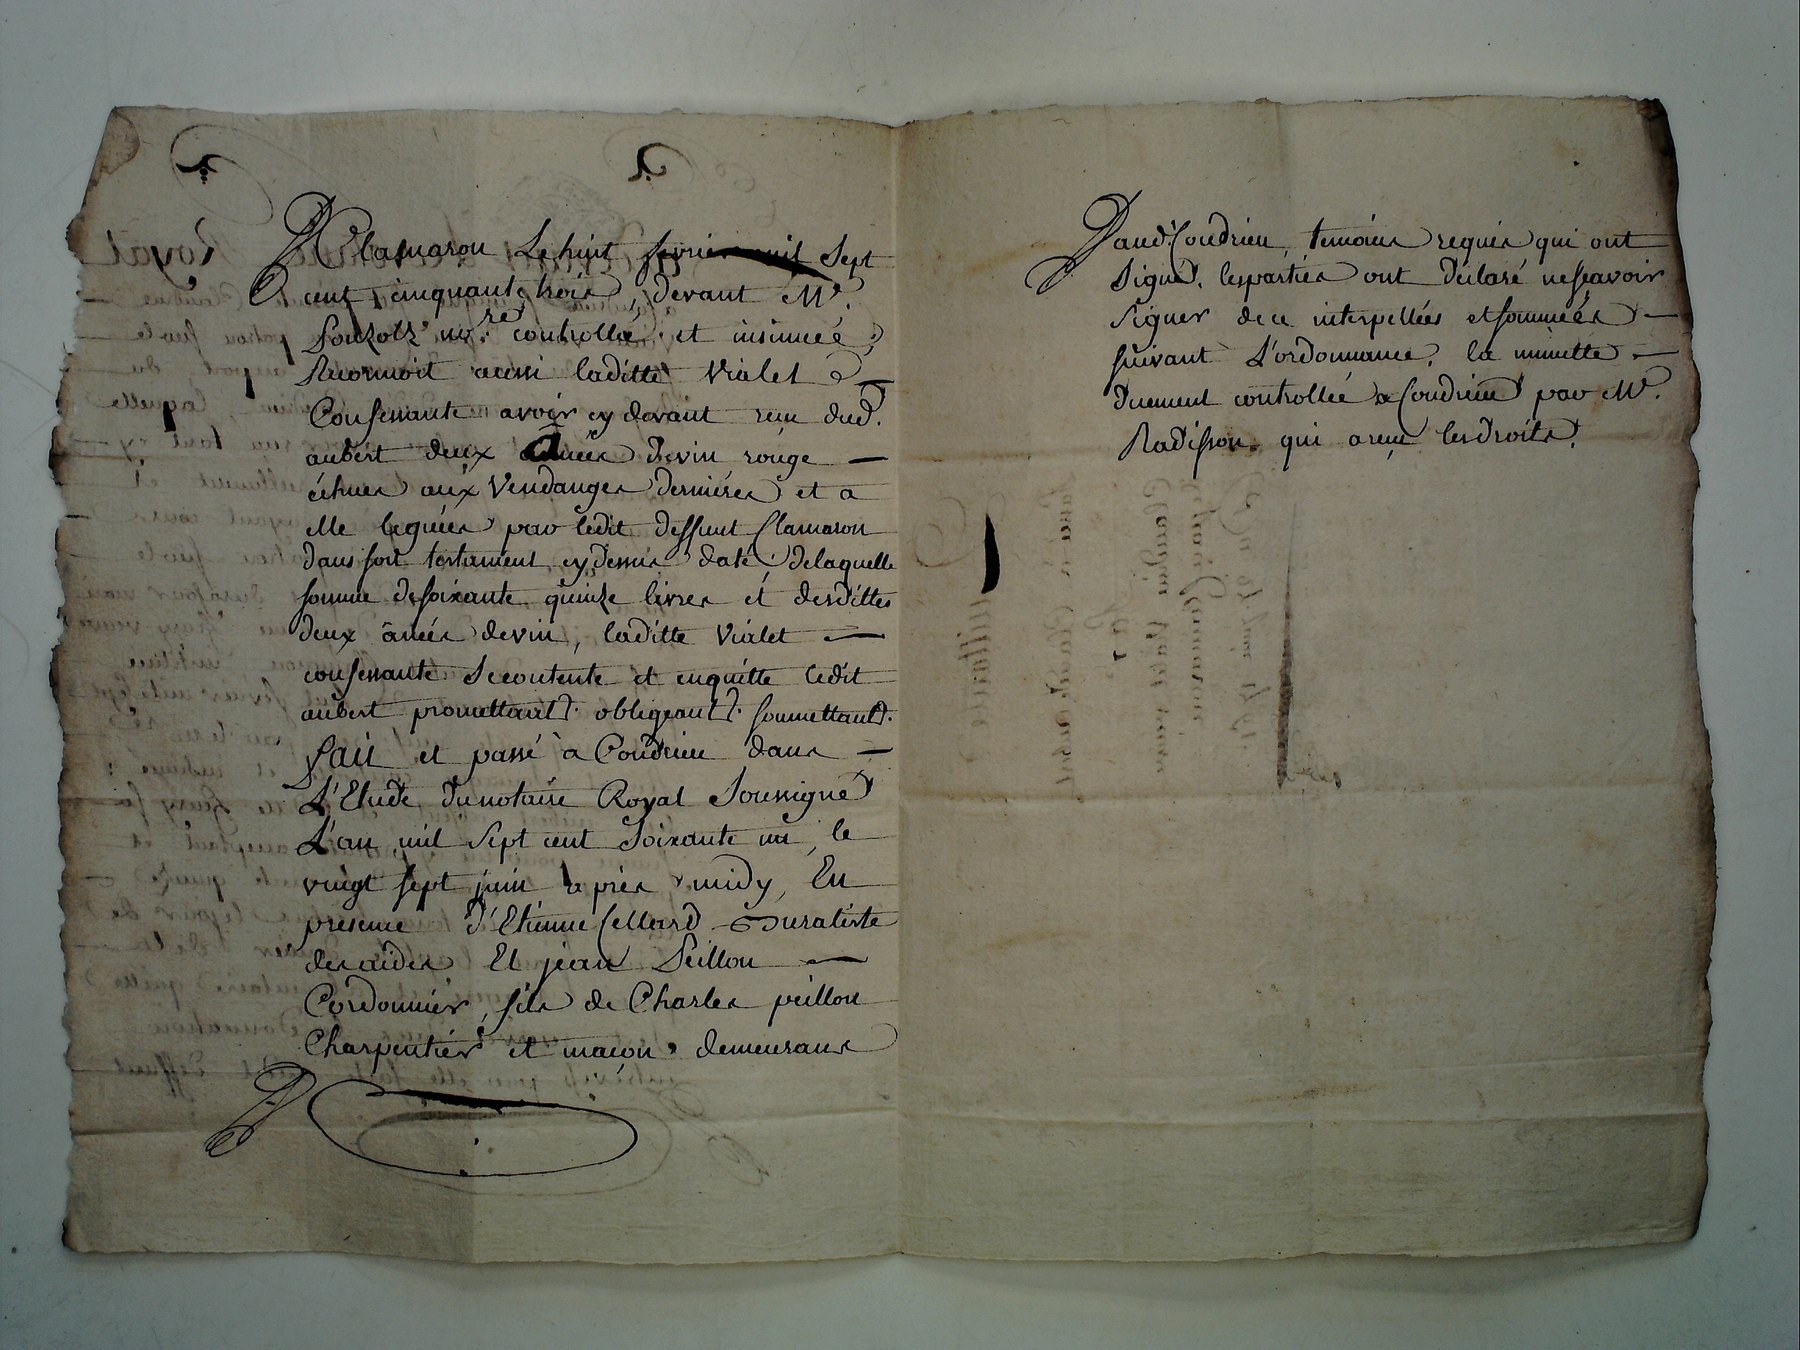 Clamaron Le huit fevrier mil Sept
cent cinquante trois, devant Me.
nre. controllé et insinué,
Reconnoit aussi laditte Vialet
Confessante avoir cy devant reçu dud.
aubert deux anées de vin rouge
échues aux Vendanges dernières et a
elle leguées par ledit deffunt Clamaron
dans son testament cy dessus daté, de laquelle
somme de soixante quinze livres et desdittes
deux ânées de vin, laditte Vialet
confessante se contente et enquitte ledit
aubert promettant. obligeant. soumettant.
fait et passé à Condrieu dans
L'Etude du notaire Royal Soussigné
L'an mil Sept cent Soixante un, le
vingt sept juin après midy, En
presence d'Etienne Cellard Buraliste
des aides Et jean Peillon
Cordonnier, fils de Charles peillon
Charpentier et maçon demeurans
aud. Condrieu, temoins requis qui ont
signé. les parties ont declaré ne sçavoir
signer de ce interpellées et sommées
suivant L'ordonnance. la minutte
duement controllée a Condrieu par Mr.
Radisson qui a reçu les droits.